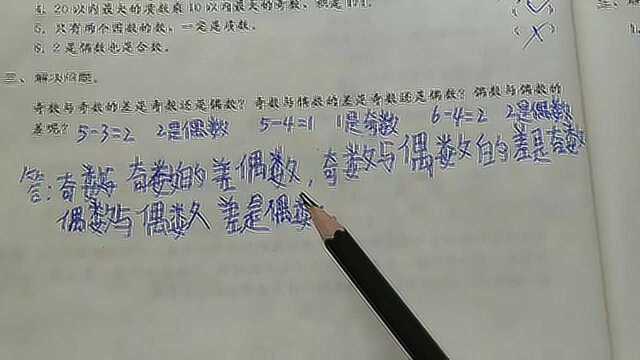 4. 20以内最大的质数乘10以内最大的奇数，积是171。 (✓)
5. 只有两个因数的数，一定是质数。
6. 2是偶数也是合数。 (×)
三、解决问题。
奇数与奇数的差是奇数还是偶数？奇数与偶数的差是奇数还是偶数？偶数与偶数的
差呢？ 5-3=2 2是偶数 5-4=1 1是奇数 6-4=2 2是偶数
答：奇数与奇数的差偶数，奇数与偶数的差是奇数
偶数与偶数 差是偶数